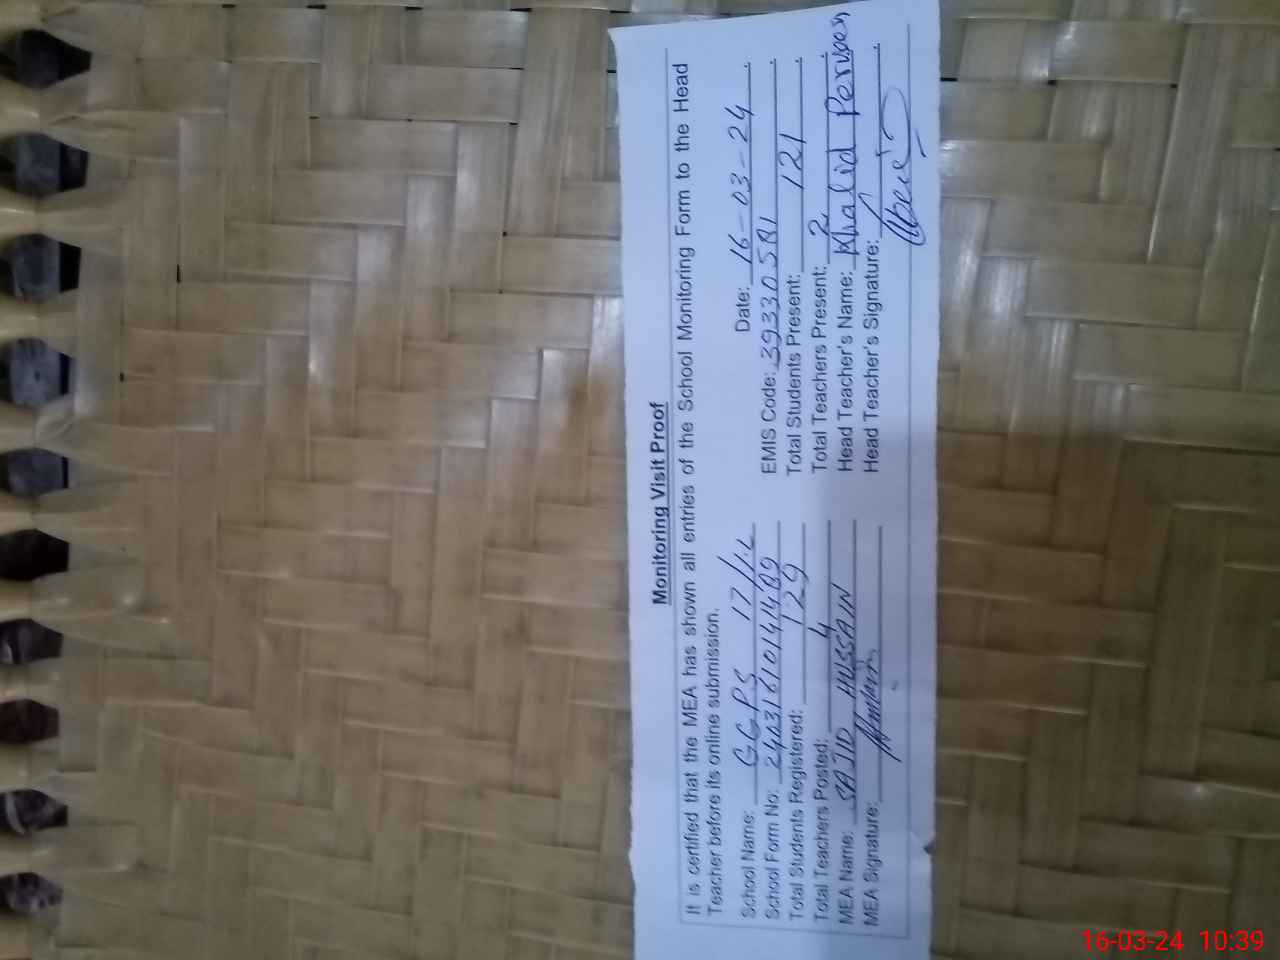 Monitoring Visit Proof
It is certified that the MEA has shown all entries of the School Monitoring Form to the Head
Teacher before its online submission.
School Name: GGPS 17/1.L Date: 16-03-24
School Form No: 24031610141489 EMIS Code: 39330581
Total Students Registered: 129 Total Students Present: 121
Total Teachers Posted: 4 Total Teachers Present: 2
MEA Name: SAJID HUSSAIN Head Teacher's Name: Khalid Perveen
MEA Signature: Head Teacher's Signature:
16-03-24 10:39